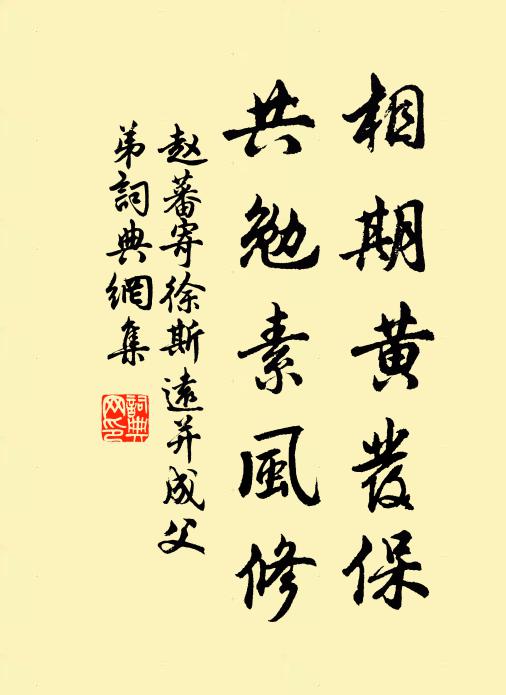 相期黄發保
共勉素風修
赵蕃寄徐斯遠并成父
弟詞典網集
詞典網印